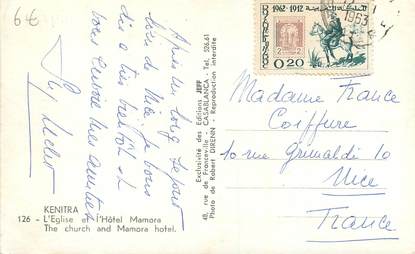 6€
Après un long séjour
loin de Nice, je vous
dis à très bientôt et
vous envoie mes amitiés
KENITRA
126 - L'Eglise et l'Hôtel Mamora
The church and Mamora hotel.
Exclusivité des Editions JEFF
48, rue de Franceville - CASABLANCA - 526.61
Photo de Robert DIRENN - Reproduction interdite
1962 1912
0.20
1963
Madame France
Coiffure
10 rue Grimaldi 10
Nice
France